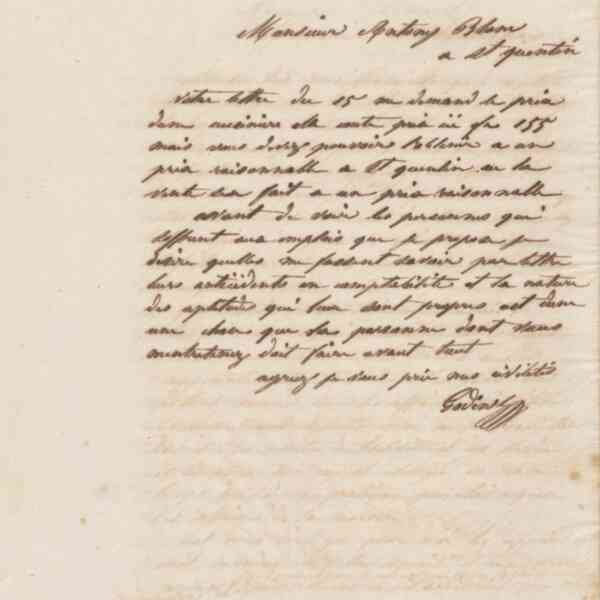 Monsieur Antony Blanc
a St quentin
votre lettre du 15 me demand le prix
dune cuisiniere elle coute prix ici fr 155
mais vous devez pouvoir l'obtenir a un
prix raisonnable a St quentin ou la
vente sen fait a un prix raisonnable
avant de voir les personnes qui
soffrent aux emplois que je propose je
desire quelles me fassent savoir par lettre
leurs antécédents en comptabilité et la nature
des aptitudes qui leur sont propres cest donc
une chose que la personne dont vous
mentretenez doit faire avant tout
agreez je vous prie mes civilités
Godin